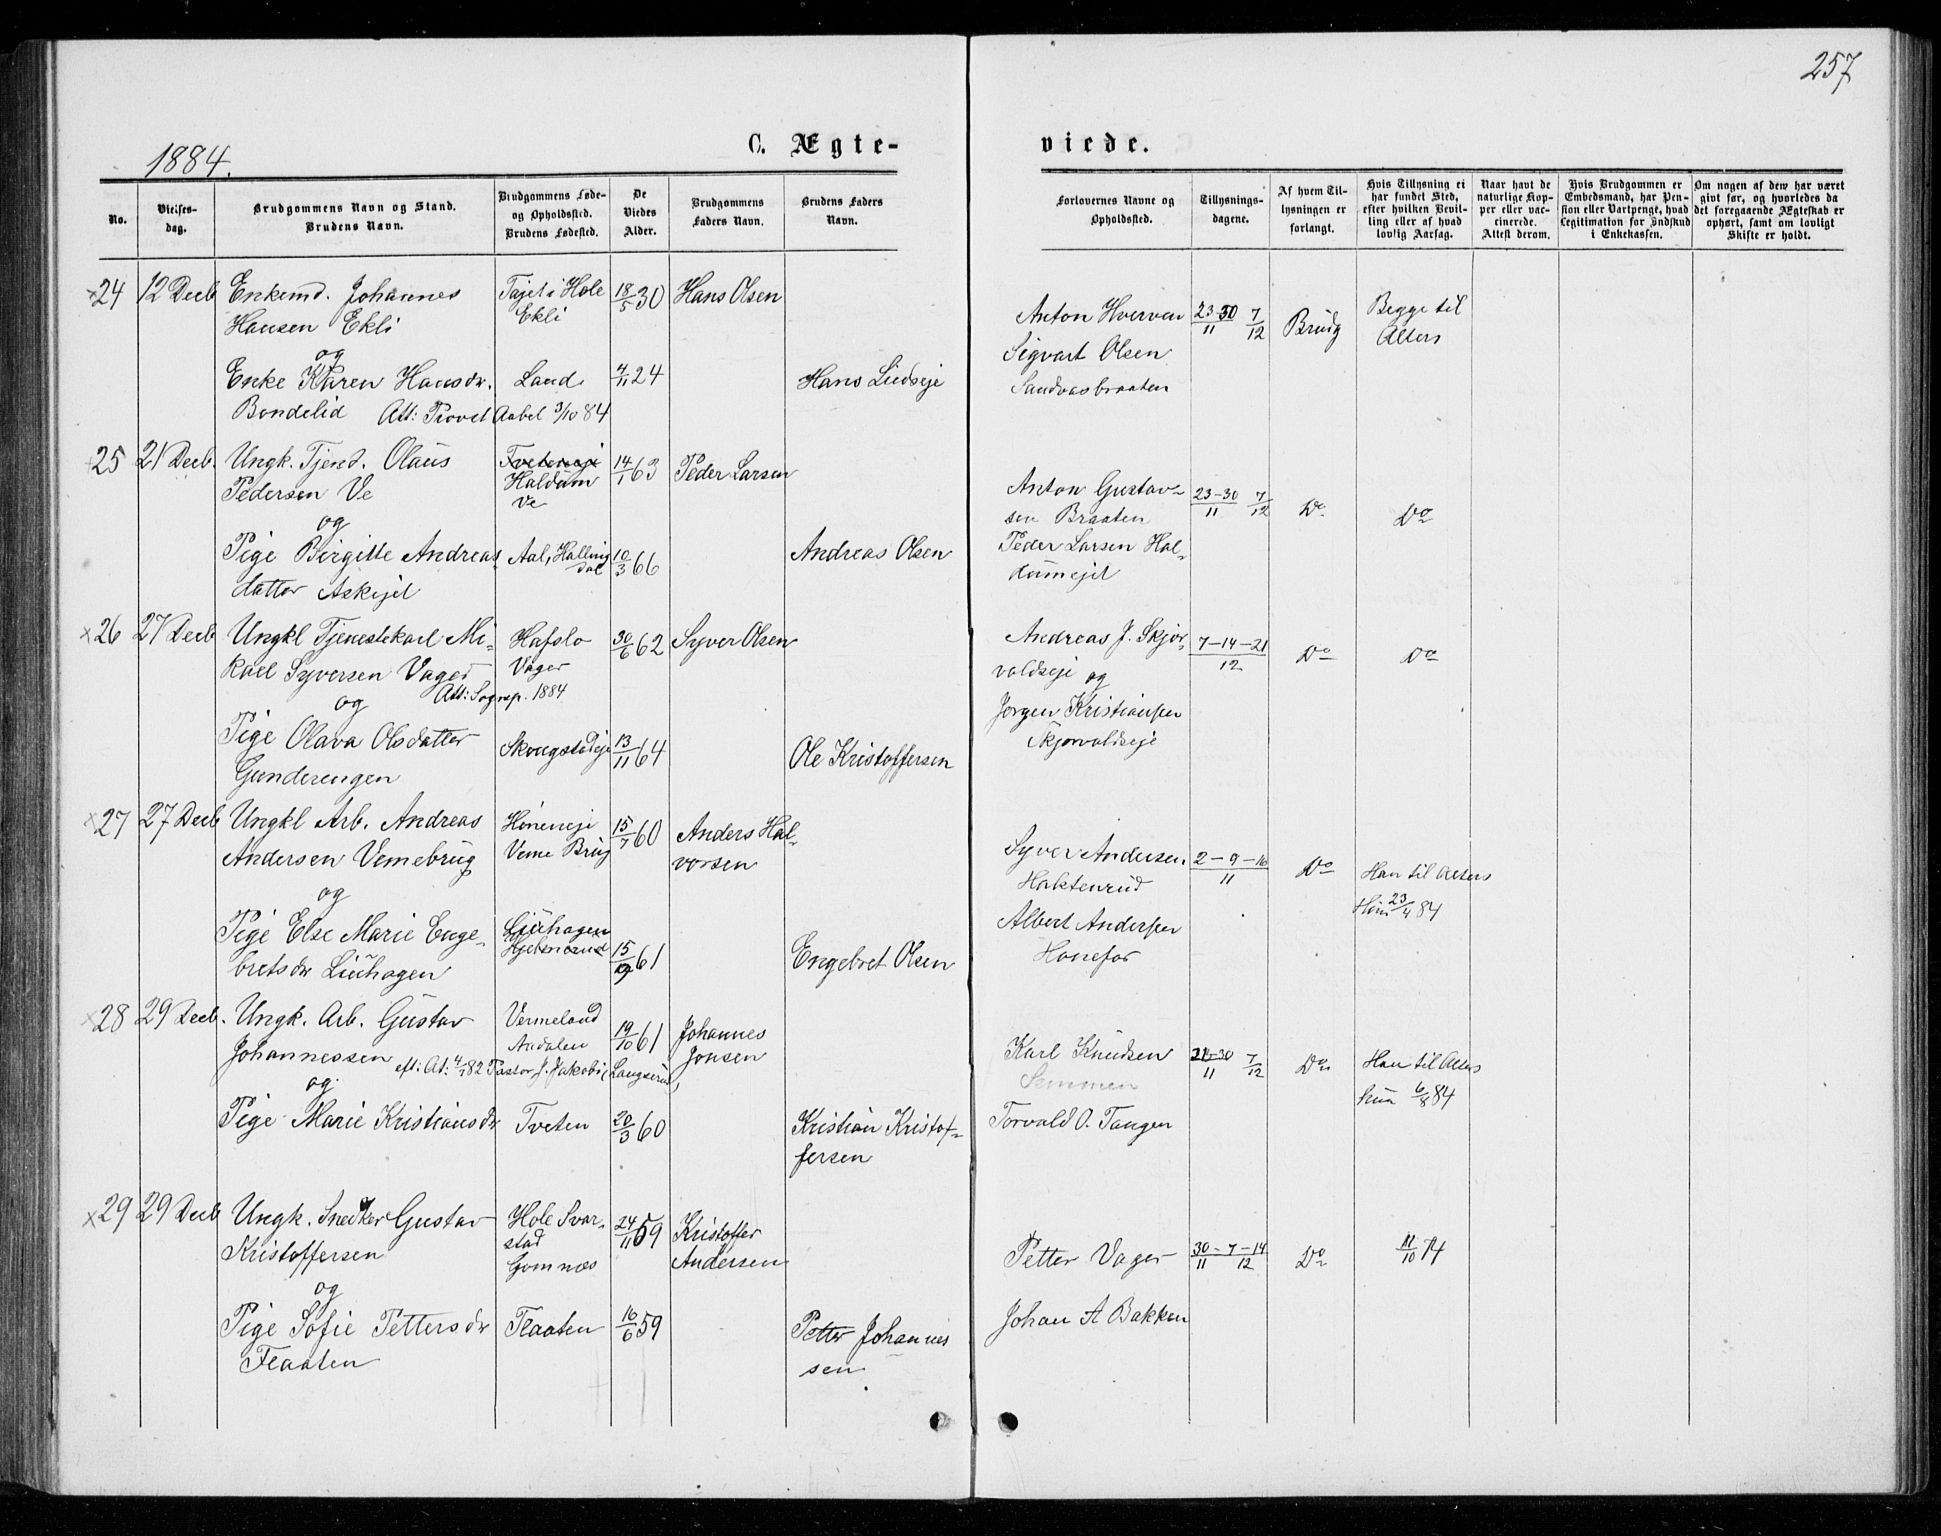 257
1884.
C. Ægte-
viede.
No.
Vielses-
dag.
Brudgommens Navn og Stand.
Brudens Navn.
Brudgommens Føde-
og Opholdssted.
Brudens Fødested.
De
Viedes
Alder.
Brudgommens
Faders Navn.
Brudens Faders
Navn.
Forlovernes Navne og
Opholdssted.
Tillysnings-
dagene.
Af hvem Til-
lysningen er
forlangt.
Hvis Tillysning ei
har fundet Sted,
efter hvilken Bevil-
ling eller af hvad
lovlig Aarsag.
Naar havt de
naturlige Kop-
per eller vac-
cinerede.
Attest derom.
Hvis Brudgommen er
Embedsmand, har Pen-
sion eller Vartpenge, hvad
Legitimation for Indskud
i Enkekassen.
Om nogen af dem har været
givt før, og hvorledes da
det foregaaende Ægteskab er
ophørt, samt om lovligt
Skifte er holdt.
24 12 Decb Enkemd. Johannes
Hansen Ekli
Tajet i Hole
Ekli
18/5 30 Hans Olsen
og
Enke Karen Hansdr.
Bondelid Att: Provst Aabel 3/10 84
Land 4/11 24 Hans Lindseje
Anton Hverven
Sigvart Olsen
Sandvasbraaten
23-30/11 7/12 Brudg
Begge til
Alters
25 21 Decb. Ungk. Tjend. Olaus
Pedersen Ve
Tveteneje
Haldum
Ve
14/1 63 Peder Larsen
og
Pige Birgitte Andreas
datter Askejet
Aal, Halling
dal
10/3 66 Andreas Olsen
Anton Gustav-
sen Braaten
Peder Larsen Hal-
dumejet
23-30/11 7/12 Do Do
26 27 Decb Ungkl Tjenestekarl Mi-
kael Syversen Vager
Hafslo
Vager
30/6 62 Syver Olsen
Att: Sognep. 1884
og
Pige Olava Olsdatter
Gunderengen
Skougstadeje 13/11 64 Ole Kristoffersen
Andreas J. Skjør-
valdseje og
Jørgen Kristiansen
Skjørvaldseje
7-14-21/12 Do Do
27 27 Decb Ungkl Arb. Andreas
Andersen Vemebrug
Høneneje
Veme Brug
15/7 60 Anders Hal-
vorsen
og
Pige Else Marie Enge-
bretsdr Liuhagen
Liuhagen
Hjelmerud
15/10 61 Engebret Olsen
Syver Andersen
Haktenrud
Albert Andersen
Hønefos
2-9-16/11 Do Han til Alters
Hun 23/4 84
28 29 Decb. Ungk. Arb. Gustav
Johannessen
Vermeland
Aadalen
19/10 61 Johannes
Jonsen
eft: At: 4/1 82 Pastor J. Jakobi (Langserud)
og
Pige Marie Kristiansdr Tveten 20/3 60 Kristian Kristof-
fersen
Karl Knudsen
Semmen
Torvald O. Tangen
23-30/11 7/12 Do Han til Alters
hun 6/8 84
29 29 Decb Ungk. Snedker Gustav
Kristoffersen
Hole Svar-
stad
Gomnæs
24/11 59 Kristoffer
Andersen
og
Pige Sofie Pettersdr
Flaaten
Flaaten 16/6 59 Petter Johannes
sen
Petter Vager
Johan A Bakken
30/11 - 7-14/12 Do 11/10 74